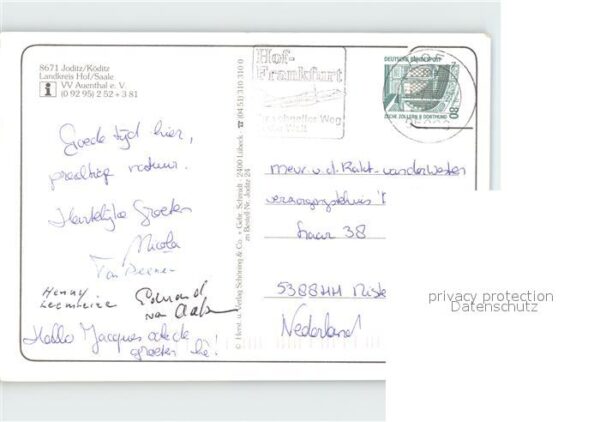 8671 Joditz/Köditz
Landkreis Hof/Saale
i VV Auenthal e. V.
(0 92 95) 2 52 + 3 81
Goede tijd hier,
prachtige natuur.
Hartelijke Groeten
Nicola
Henny
Eduard
van
Hallo Jacques ook de
groeten hè!
© Horst u. Verlag Schöning & Co. + Gebr. Schmidt · 2400 Lübeck · ☎ (04 51) 310 310 0
Bestell-Nr. Joditz 24
Hof-
Frankfurt
schneller Weg
Welt
DEUTSCHE BUNDESPOST
80
ZECHE ZOLLERN II DORTMUND
mevr. v.d. Rakt-vanderWesten
verzorgingstehuis
38
5388HH Niste
Nederland
privacy protection
Datenschutz